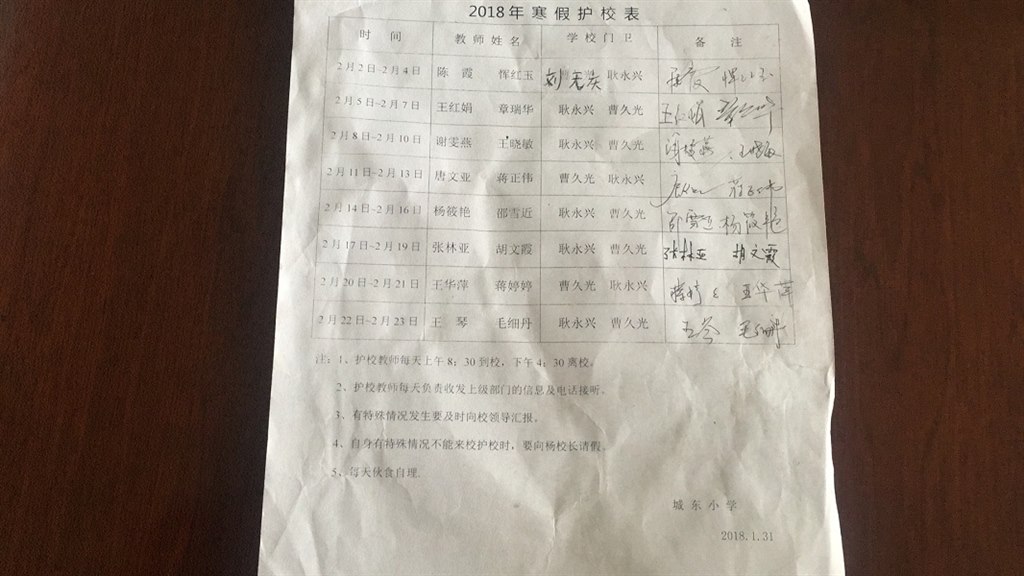 2018年寒假护校表
时 间 教师姓名 学校门卫 备 注
2月2日–2月4日 陈 霞 恽红玉 刘无庆 耿永兴
2月5日–2月7日 王红娟 章瑞华 耿永兴 曹久光 王红娟 章瑞华
2月8日–2月10日 谢雯燕 王晓敏 耿永兴 曹久光 王晓敏
2月11日–2月13日 唐文亚 蒋正伟 曹久光 耿永兴
2月14日–2月16日 杨筱艳 邵雪近 耿永兴 曹久光 邵雪近 杨筱艳
2月17日–2月19日 张林亚 胡文霞 耿永兴 曹久光 张林亚 胡文霞
2月20日–2月21日 王华萍 蒋婷婷 曹久光 耿永兴 蒋婷婷 王华萍
2月22日–2月23日 王 琴 毛细丹 耿永兴 曹久光 王琴 毛细丹
注：1、护校教师每天上午8：30到校，下午4：30离校。
2、护校教师每天负责收发上级部门的信息及电话接听。
3、有特殊情况发生要及时向校领导汇报。
4、自身有特殊情况不能来校护校时，要向杨校长请假。
5、每天伙食自理.
城东小学
2018.1.31